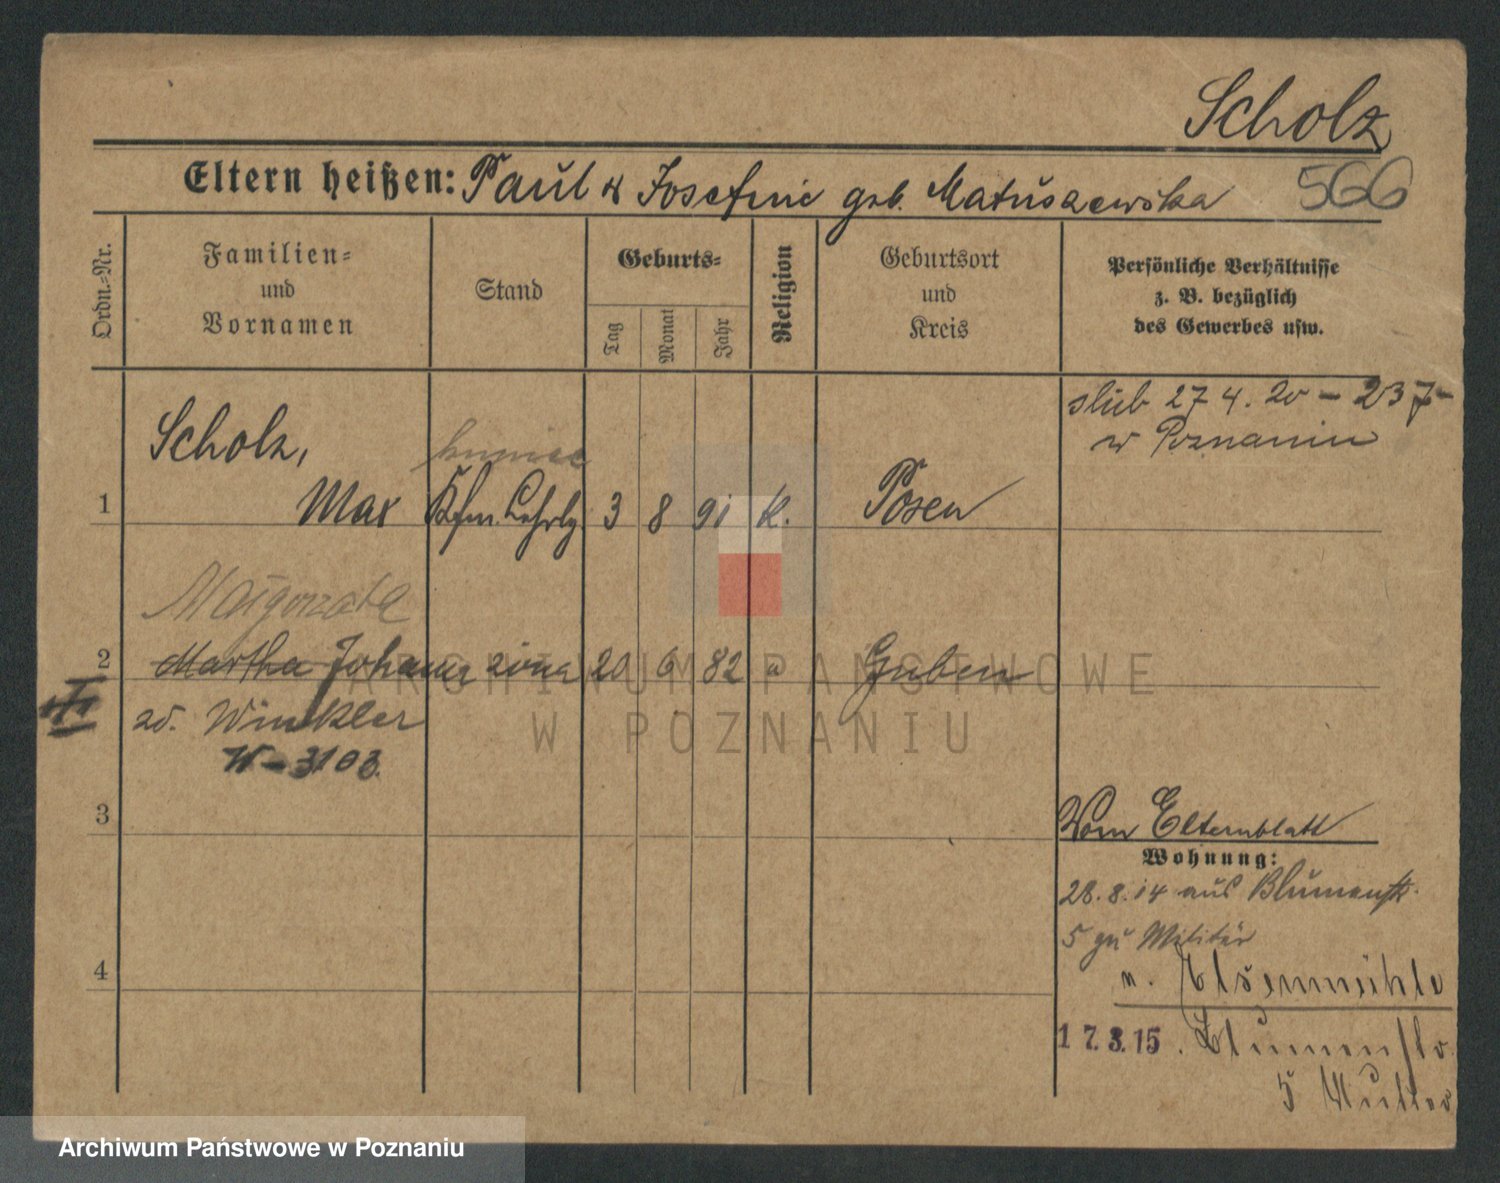 Scholz
Eltern heißen: Paul & Josefine geb. Matuszewska 566
Ordn.-Nr.
Familien-
und
Vornamen
Stand
Geburts-
Tag
Monat
Jahr
Religion
Geburtsort
und
Kreis
Persönliche Verhältnisse
z. B. bezüglich
des Gewerbes usw.
ślub 27 4. 20 - 237-
w Poznaniu
Scholz,
kupiec
1 Max Kfm. Lehrlg. 3 8 91 k. Posen
Małgorzata
2 Martha Johanna żona 20 6 82 Guben
zd. Winkler
W-3103.
3
Vom Elternblatt
Wohnung:
28.8.14 aus Blumenstr.
5 zu Militär
4
n. Elsenmühle
17.3.15. Blumenstr.
5 Mutter
ARCHIWUM PAŃSTWOWE
W POZNANIU
Archiwum Państwowe w Poznaniu